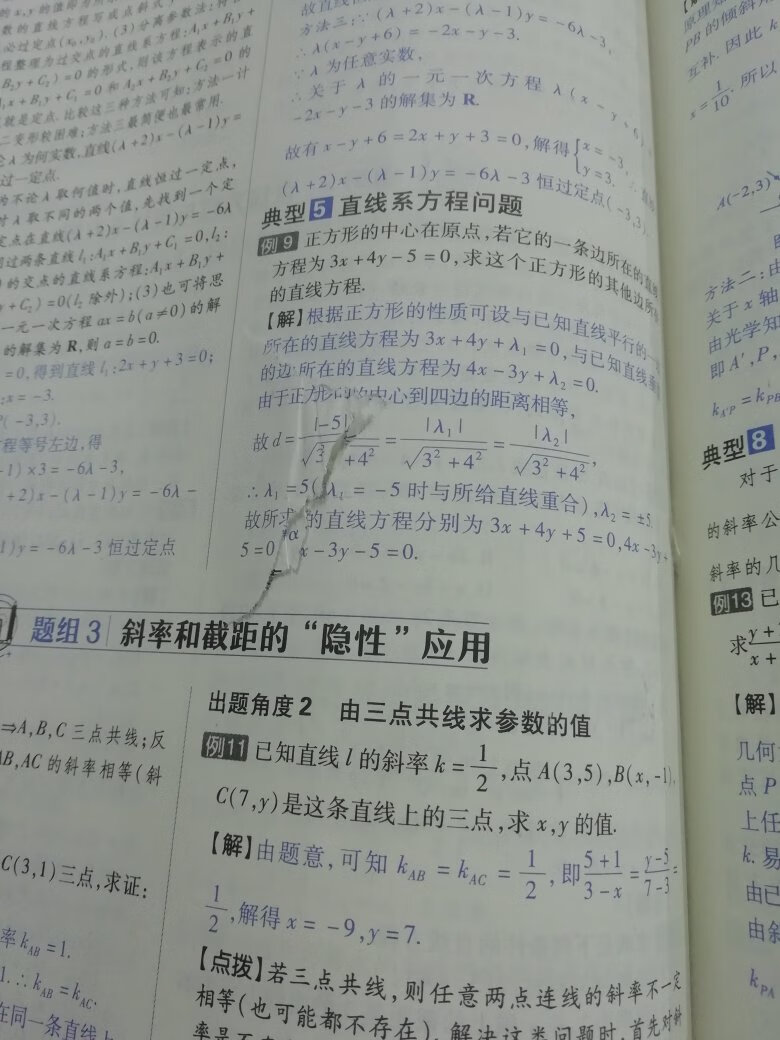 的x,y的值即为所
数的直线方程写成点斜式
必过定点(x₀,y₀). (3)分离参数法:将
程整理为过交点的直线系方程:A₁x+B₁y+
B₂y+C₂)=0的形式,则该方程表示的直
A₁x+B₁y+C₁=0和A₂x+B₂y+C₂=0的
就是定点.比较这三种方法可知:方法一计
二变形较困难;方法三最简便也最常用.
论λ为何实数,直线(λ+2)x-(λ-1)y=
过一定点.
为不论λ取何值时,直线恒过一定点,
对λ取不同的两个值,先找到一个定
定点在直线(λ+2)x-(λ-1)y=-6λ
过两条直线l₁:A₁x+B₁y+C₁=0,l₂:
0的交点的直线系方程:A₁x+B₁y+
y+C₂)=0(l₂除外);(3)也可将思
一元一次方程ax=b(a≠0)的解
的解集为R,则a=b=0.
=0,得到直线l₁:2x+y+3=0;
:x=-3.
P(-3,3).
程等号左边,得
-1)×3=-6λ-3,
+2)x-(λ-1)y=-6λ-
1)y=-6λ-3恒过定点
故直线
方法三:∵(λ+2)x-(λ-1)y=-6λ-3,
∴λ(x-y+6)=-2x-y-3.
∵λ为任意实数,
∴关于λ的一元一次方程λ(x-y+6)
-2x-y-3的解集为R.
故有x-y+6=2x+y+3=0,解得{x=-3, y=3.
(λ+2)x-(λ-1)y=-6λ-3恒过定点(-3,3).
典型5 直线系方程问题
例9 正方形的中心在原点,若它的一条边所在的直线
方程为3x+4y-5=0,求这个正方形的其他边所
的直线方程.
【解】根据正方形的性质可设与已知直线平行的一
所在的直线方程为3x+4y+λ₁=0,与已知直线垂
的边所在的直线方程为4x-3y+λ₂=0.
由于正方形的中心到四边的距离相等,
故d=|-5|/√(3²+4²)=|λ₁|/√(3²+4²)=|λ₂|/√(3²+4²),
∴λ₁=5(λ₁=-5时与所给直线重合),λ₂=±5.
故所求的直线方程分别为3x+4y+5=0,4x-3y+
5=0 x-3y-5=0.
题组3 斜率和截距的“隐性”应用
⇒A,B,C三点共线;反
AB,AC的斜率相等(斜
C(3,1)三点,求证:
率k_AB=1.
1.∴k_AB=k_AC.
在同一条直线上
出题角度2 由三点共线求参数的值
例11 已知直线l的斜率k=1/2,点A(3,5),B(x,-1),
C(7,y)是这条直线上的三点,求x,y的值.
【解】由题意,可知k_AB=k_AC=1/2,即(5+1)/(3-x)=(y-5)/(7-3)=
1/2,解得x=-9,y=7.
【点拨】若三点共线,则任意两点连线的斜率不一定
相等(也可能都不存在).解决这类问题时,首先对斜
PB的倾斜
互补.因此k
x=1/10.所以
A(-2,3)
方法二:由
关于x轴
由光学知
即A′,P,
k_A′P=k_PB
典型8
对于
的斜率公
斜率的几
例13 已
求(y+ /x+
【解】
几何
点P
上任
k.易
由已
由斜
k_PA